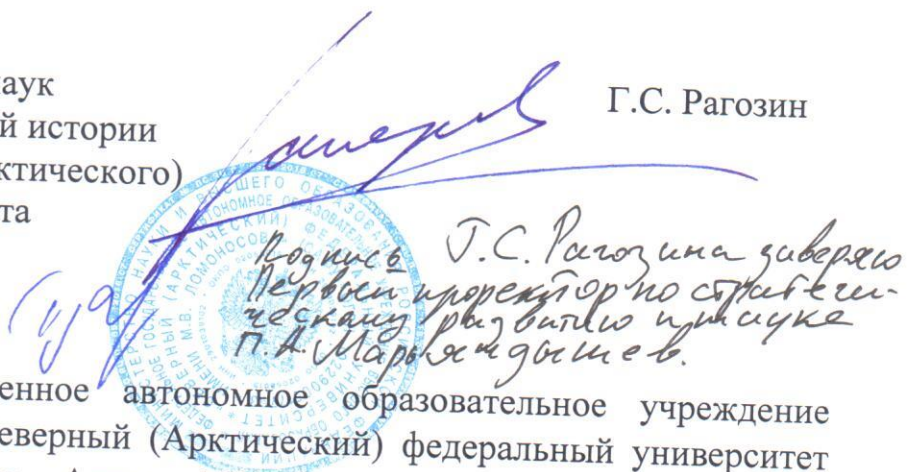 наук
й истории
ктического)
та
Г.С. Рагозин
Подпись Г.С. Рагозина заверяю
Первый проректор по стратеги-
ческому развитию и науке
П.А. Марьяндышев.
енное автономное образовательное учреждение
еверный (Арктический) федеральный университет